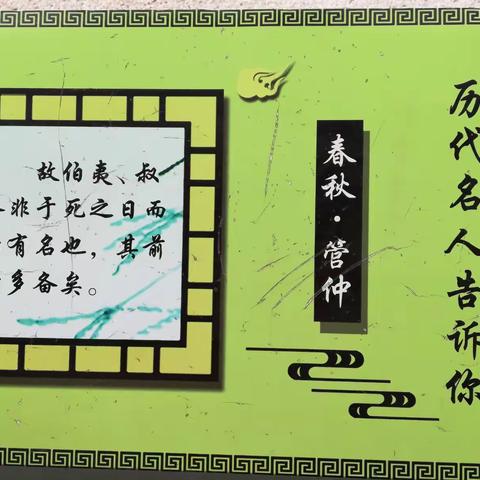 历代名人告诉你
春秋·管仲
故伯夷、叔
非于死之日而
有名也，其前
多备矣。